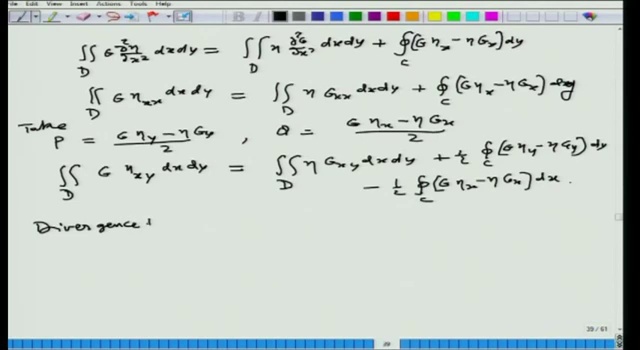 File View Insert Actions Tools Help
∬_D G ∂²η/∂x² dxdy = ∬_D η ∂²G/∂x² dxdy + ∮_C (Gη_x − ηG_x) dy
∬_D G η_xx dxdy = ∬_D η G_xx dxdy + ∮_C (Gη_x − ηG_x) dy
Take P = (G η_y − η G_y)/2 , Q = (G η_x − η G_x)/2
∬_D G η_xy dxdy = ∬_D η G_xy dxdy + ½ ∮_C (G η_y − η G_y) dy
− ½ ∮_C (G η_x − η G_x) dx.
Divergence
39 / 61
39